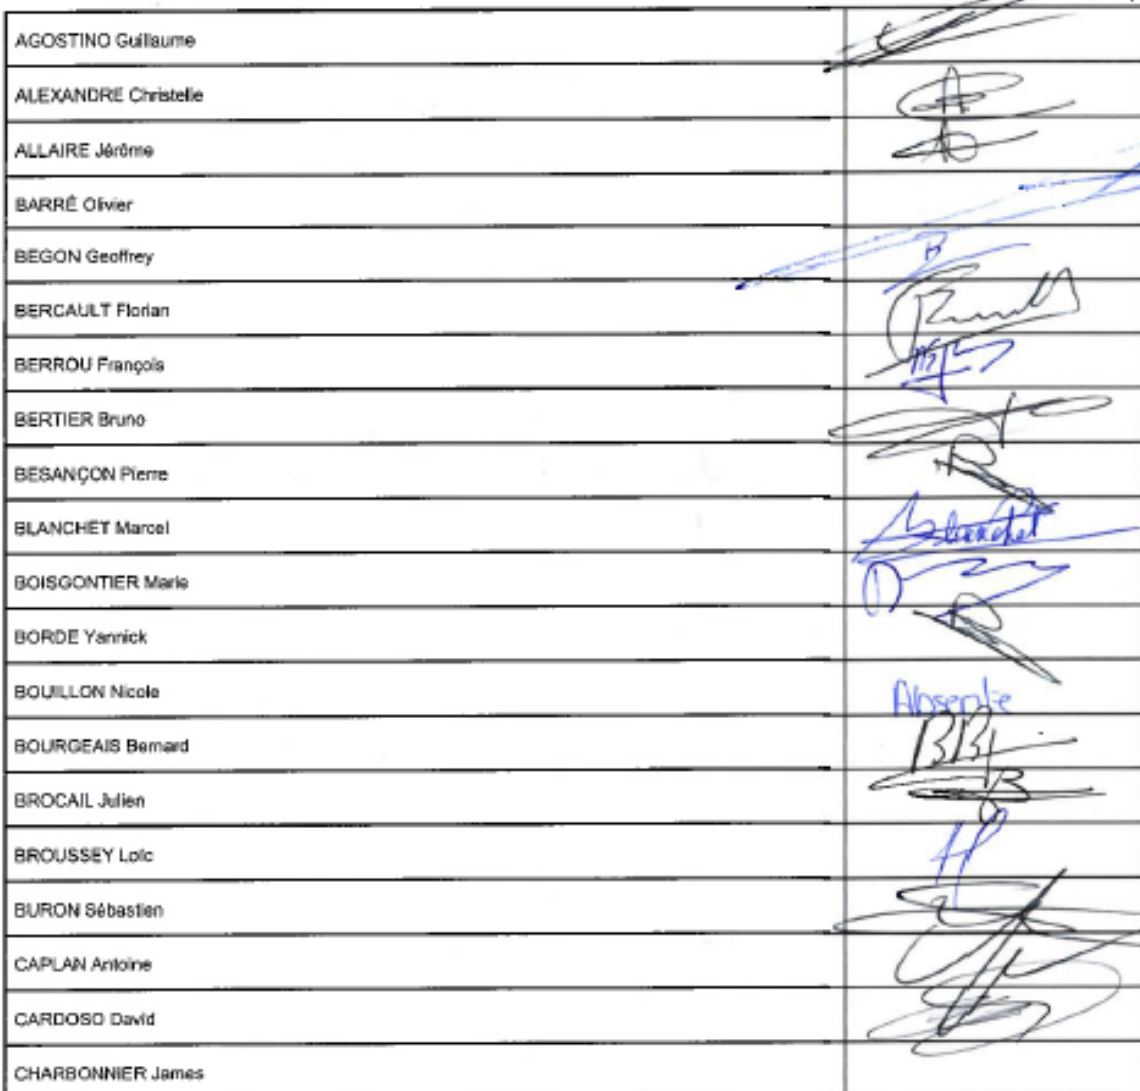 AGOSTINO Guillaume
ALEXANDRE Christelle
ALLAIRE Jérôme
BARRÉ Olivier
BEGON Geoffrey
BERCAULT Florian
BERROU François
BERTIER Bruno
BESANÇON Pierre
BLANCHET Marcel
Blanchet
BOISGONTIER Marie
BORDE Yannick
BOUILLON Nicole
Absente
BOURGEAIS Bernard
BROCAIL Julien
BROUSSEY Loïc
BURON Sébastien
CAPLAN Antoine
CARDOSO David
CHARBONNIER James